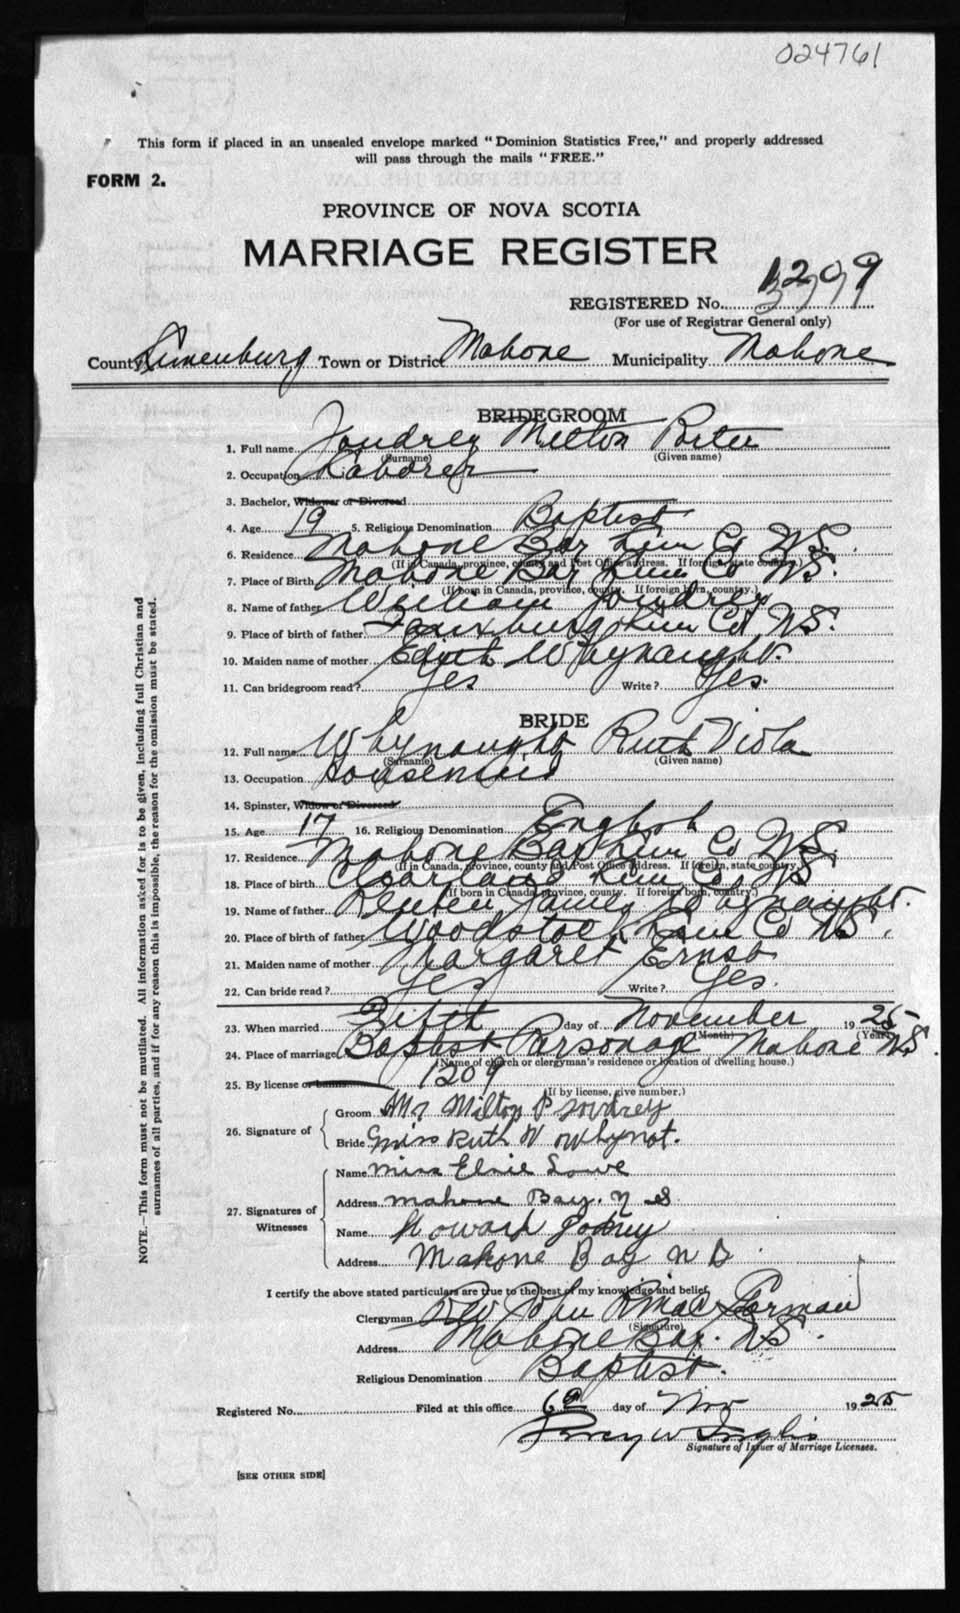 024761
This form if placed in an unsealed envelope marked "Dominion Statistics Free," and properly addressed
will pass through the mails "FREE."
FORM 2.
PROVINCE OF NOVA SCOTIA
MARRIAGE REGISTER
REGISTERED No. 1209
(For use of Registrar General only)
County Lunenburg Town or District Mahone Municipality Mahone
BRIDEGROOM
1. Full name Joudrey Milton Peter
(Surname) (Given name)
2. Occupation Laborer
3. Bachelor, Widower or Divorced
4. Age 19 5. Religious Denomination Baptist
6. Residence Mahone Bay Lun Co NS.
(If in Canada, province, county and Post Office address. If foreign, state country.)
7. Place of Birth Mahone Bay Lun Co NS.
(If born in Canada, province, county. If foreign born, country.)
8. Name of father William Joudrey
9. Place of birth of father Fauxburg Lun Co NS.
10. Maiden name of mother Edith Whynaught.
11. Can bridegroom read? Yes Write? Yes.
BRIDE
12. Full name Whynaught Ruth Viola
(Surname) (Given name)
13. Occupation Housemaid
14. Spinster, Widow or Divorced
15. Age 17 16. Religious Denomination English
17. Residence Mahone Bay Lun Co NS.
(If in Canada, province, county and Post Office address. If foreign, state country.)
18. Place of birth Clearland Lun Co NS
(If born in Canada, province, county. If foreign born, country.)
19. Name of father Reuben James Whynaught.
20. Place of birth of father Woodstock Lun Co NS.
21. Maiden name of mother Margaret Ernst
22. Can bride read? Yes Write? Yes.
23. When married Fifth day of November 1925
(Month) (Year)
24. Place of marriage Baptist Parsonage Mahone NS.
(Name of church or clergyman's residence or location of dwelling house.)
25. By license or banns 1209
(If by license, give number.)
26. Signature of
Groom Mr Milton P Joudrey
Bride Miss Ruth V Whynot.
27. Signatures of Witnesses
Name Miss Elsie Lowe
Address Mahone Bay. N S
Name Howard Joudrey
Address Mahone Bay N S
I certify the above stated particulars are true to the best of my knowledge and belief,
Clergyman Rev John
(Signature)
Address Mahone Bay. NS.
Religious Denomination Baptist.
Registered No. Filed at this office 6th day of Nov 1925
Percy W Inglis
Signature of Issuer of Marriage Licenses.
[SEE OTHER SIDE]
NOTE.—This form must not be mutilated. All information asked for is to be given, including full Christian and
surnames of all parties, and if for any reason this is impossible, the reason for the omission must be stated.